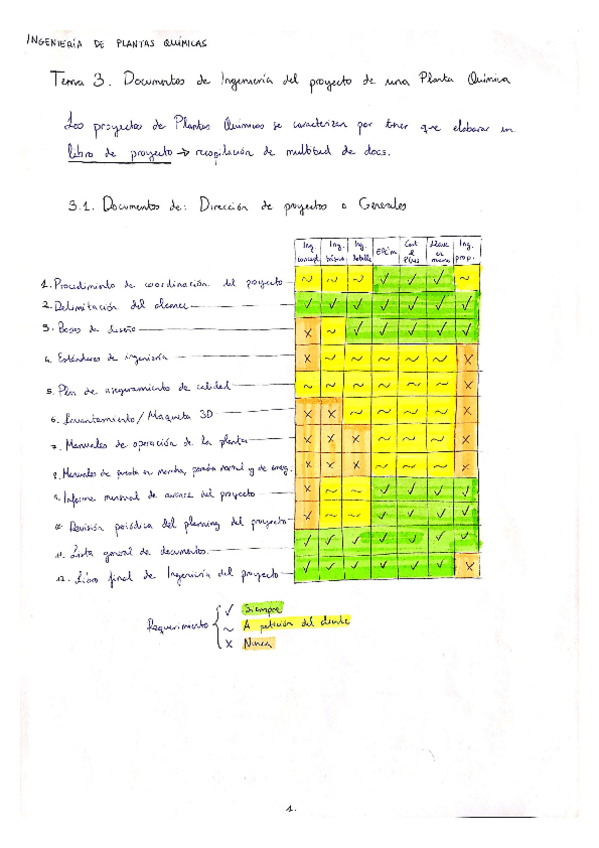 INGENIERÍA DE PLANTAS QUÍMICAS
Tema 3. Documentos de Ingeniería del proyecto de una Planta Química
Los proyectos de Plantas Químicas se caracterizan por tener que elaborar un
libro de proyecto → recopilación de multitud de docs.
3.1. Documentos de: Dirección de proyectos o Generales
Ing. concept. Ing. básica Ing. detalle EPCM Cost & Plus Llave en mano Ing. prop.
1. Procedimiento de coordinación del proyecto ~ ~ ~ ✓ ✓ ✓ ~
2. Delimitación del alcance ✓ ✓ ✓ ✓ ✓ ✓ ✓
3. Bases de diseño x ~ ✓ ✓ ✓ ✓ ✓
4. Estándares de ingeniería x ~ ~ ~ ~ ~ x
5. Plan de aseguramiento de calidad ~ ~ ~ ~ ~ ~ x
6. Levantamiento / Maqueta 3D x x ~ ~ ~ ~ x
7. Manuales de operación de la planta x x x ~ ~ ~ x
8. Manuales de puesta en marcha, parada normal y de emerg. x x x ~ ~ ~ x
9. Informe mensual de avance del proyecto x ~ ~ ✓ ✓ ✓ ✓
10. Revisión periódica del planning del proyecto x ~ ~ ✓ ✓ ✓ ✓
11. Lista general de documentos ✓ ✓ ✓ ✓ ✓ ✓ ✓
12. Libro final de Ingeniería del proyecto ✓ ✓ ✓ ✓ ✓ ✓ x
Requerimiento
✓ Siempre
~ A petición del cliente
x Nunca
1.